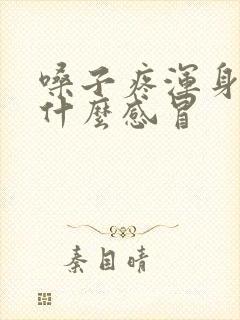 嗓子疼渾身
什麼感冒
秦目晴